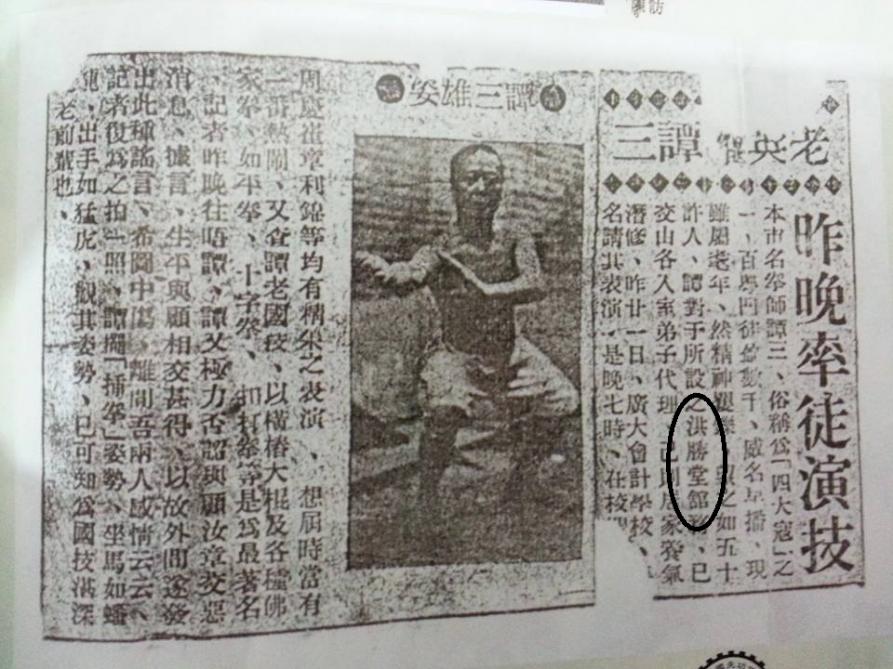 老英雄譚三
昨晚率徒演技
本市名拳師譚三、俗稱為「四大寇」之
一、百粵門徒數千、威名早播、現
雖屬老年、然精神矍、望之如五十
許人、譚對于所設之洪勝堂館務、已
交山各入室弟子代理、己則居家養氣
潛修、昨廿一日、廣大會計學校、
名請其表演、是晚七時、在校
譚三雄姿
周慶崔章利錦等均有精采之表演、想屆時當有
一番熱鬧、又查譚老國技、以橫樁大棍及各種佛
家拳、如平拳、十字拳、扣打拳等是為最著名
、記者昨晚往晤譚、譚又極力否認與顧汝章交惡
消息、據言、生平與顧相交甚得、以故外間遂發
出此種謠言、希圖中傷、離間吾兩人感情云云、
記者復為之拍一照、譚闢「插拳」姿勢、坐馬如蟠
龍、出手如猛虎、觀其姿勢、已可知為國技湛深
老前輩也、